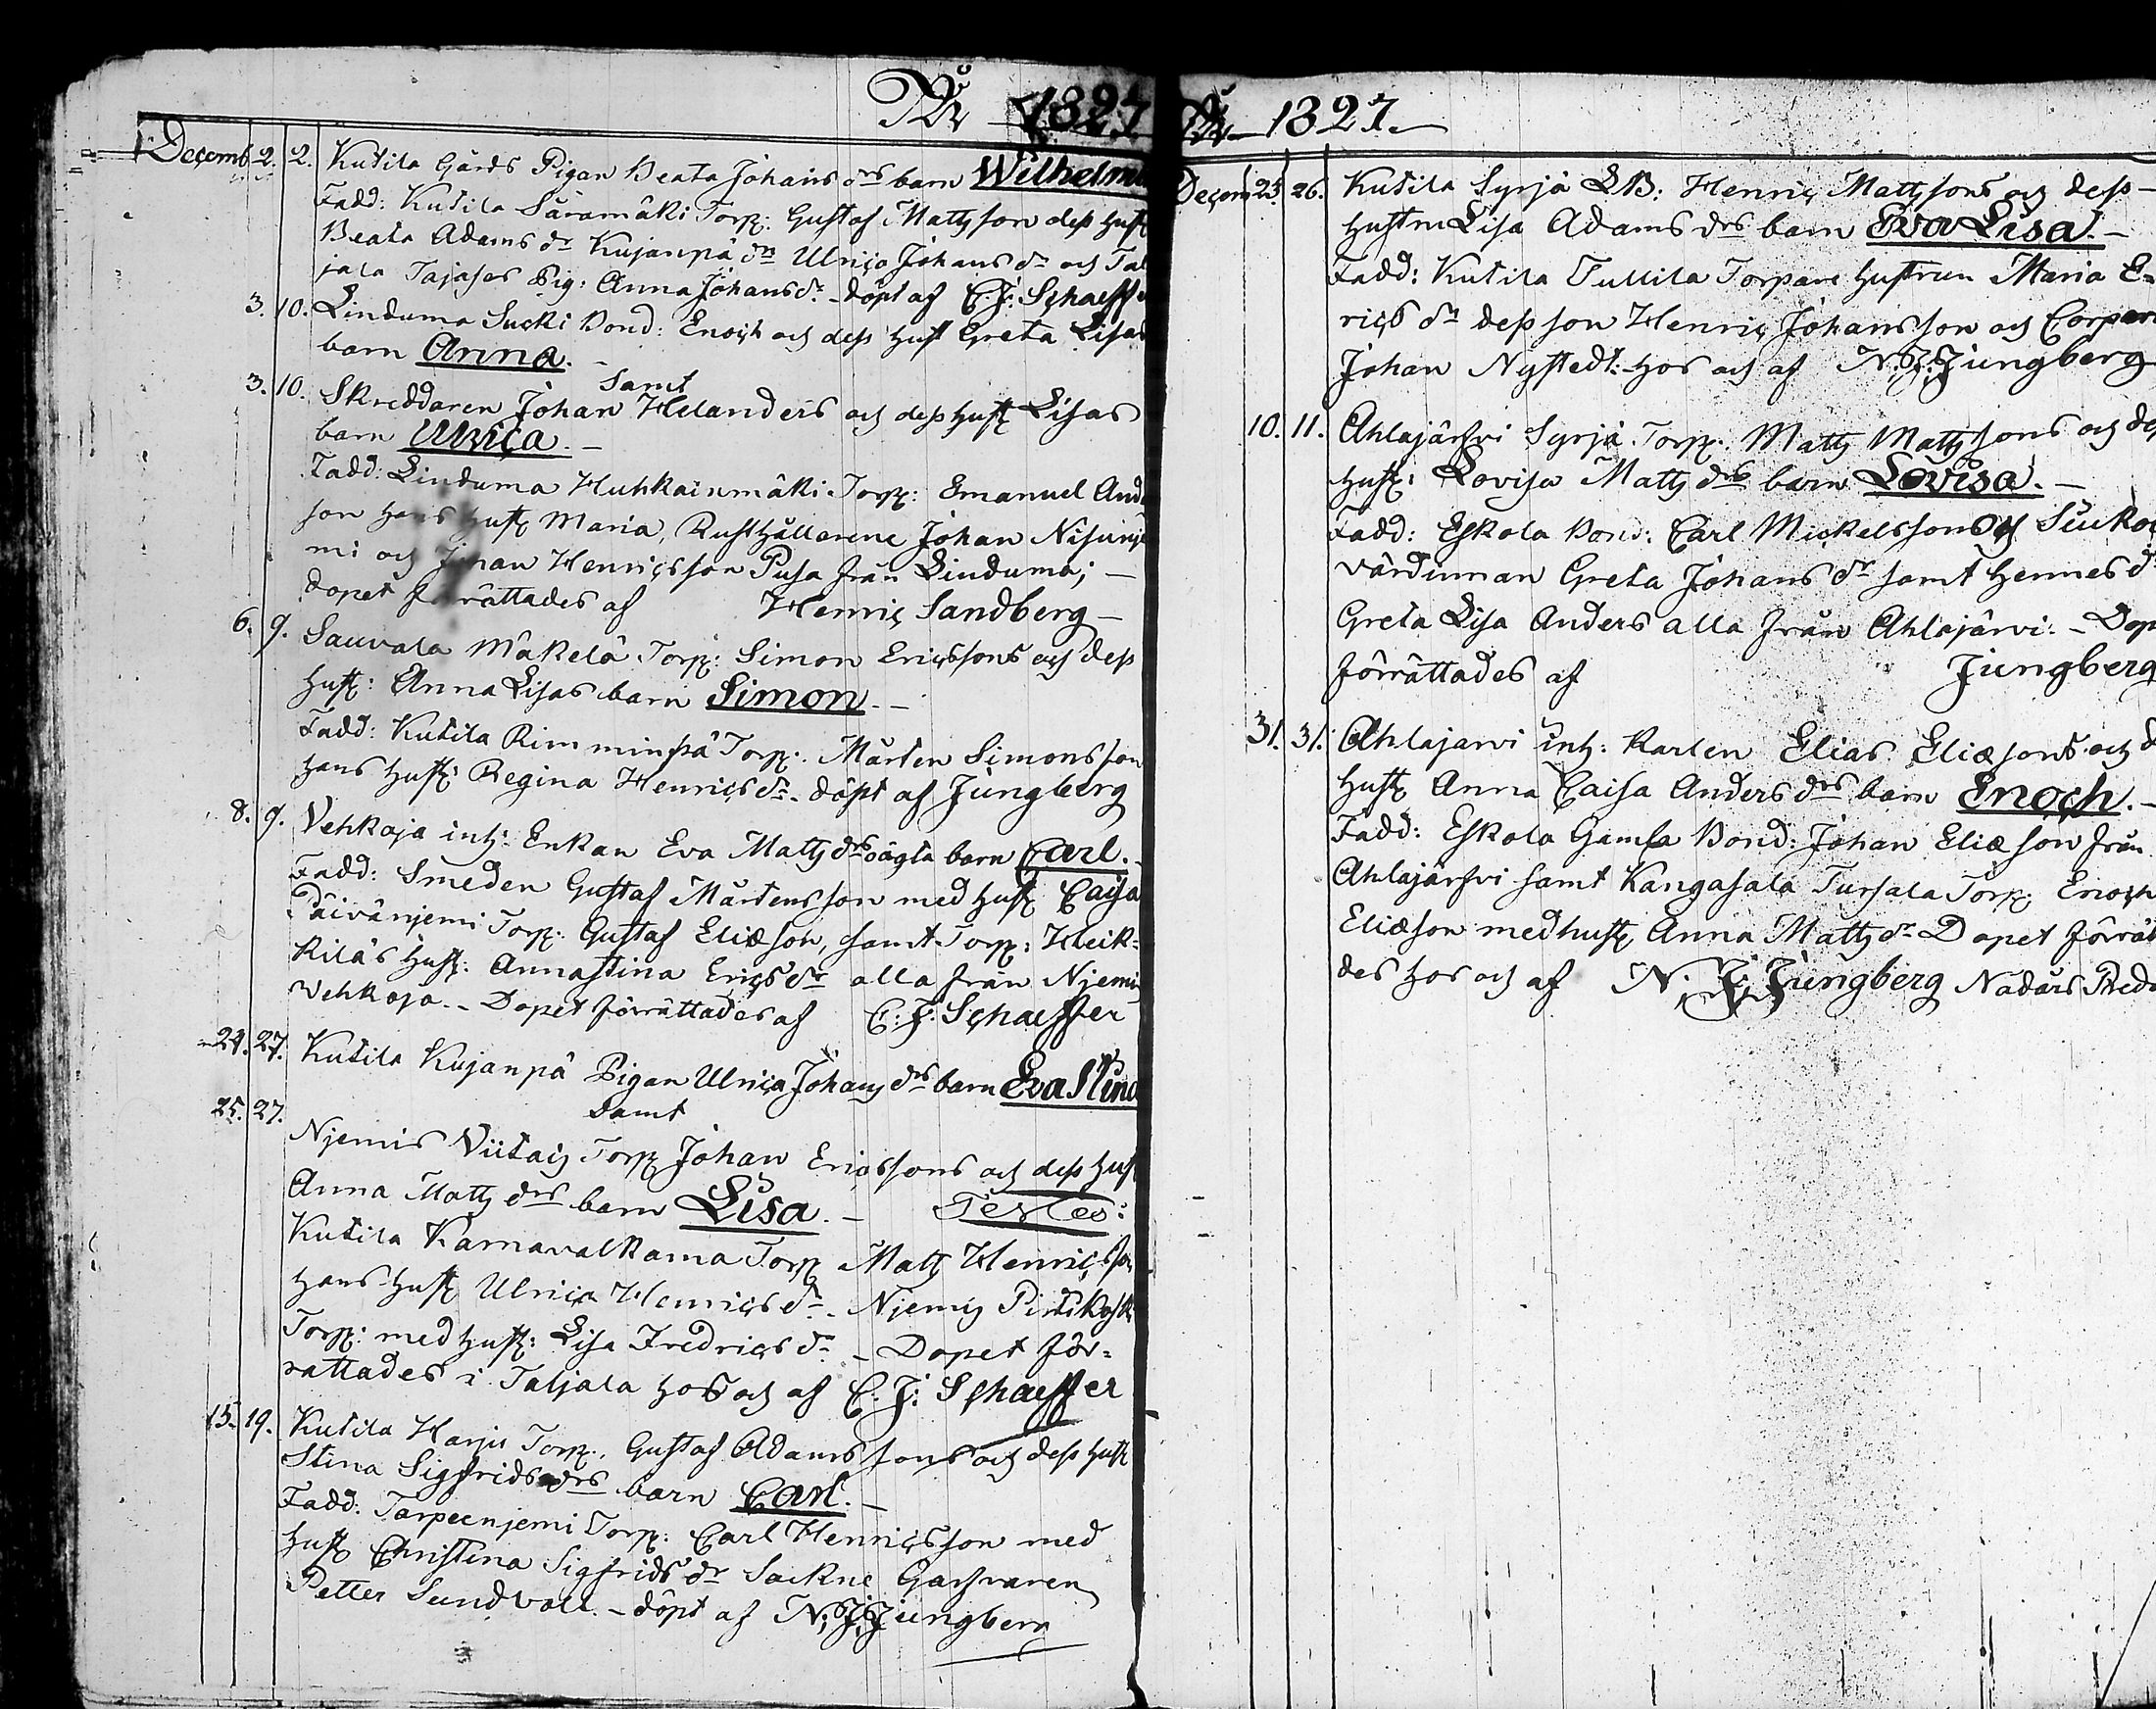 År 1827
Decemb. 2. 2. Kutila Gårds Pigan Beata Johans drs barn Wilhelm
Fadd: Kutila Säramäki Torp: Gustaf Mattsson dess Hust
Beata Adams dr Kujanpä dn Ulrica Johans dr och Tal
jala Tajases Pig: Anna Johans dr. - döpt af C. J. Schaeffe
3. 10. Linduma Sucki Bond: Enoch och dess Hust Greta Lisas
barn Anna. -
Samt
3. 10. Skreddaren Johan Helanders och dess Hust Lisas
barn Ulrica. -
Fadd: Linduma Huhkainmäki Torp: Emanuel And
son Hans Hust Maria, Rusthållarene Johan Nisunje
mi och Johan Henricsson Pusa från Linduma; -
dopet förrättades af Henric Sandberg -
6. 9. Sauvala Mäkelä Torp: Simon Ericssons och dess
Hust: Anna Lisas barn Simon. -
Fadd: Kutila Rimminpä Torp: Mårten Simonsson
Hans Hust: Regina Henrics dr. döpt af Jungberg
8. 9. Vehkoja inh: Enkan Eva Matts drs oägta barn Carl. -
Fadd: Smeden Gustaf Mårtensson med Hust Caisa
Päivänjemi Torp: Gustaf Eliæson, samt Torp: Heik-
kiläs Hust: Annastina Erics dr alla från Njemis
Vehkoja. - Dopet förrättades af C: J: Schaeffer
24. 27. Kutila Kujanpä Pigan Ulrica Johans drs barn Eva Stina
Samt
25. 27.
Njemis Viitais Torp Johan Ericssons och dess Hust
Anna Matts drs barn Lisa. - Testes:
Kutila Karnavalkama Torp Matts Henricsson
Hans Hust Ulrica Henrics dr. Njemis Pirtikoski
Torp: med Hust: Lisa Fredrics dr - Dopet för-
rättades i Taljala hos och af C. J: Schaeffer
15. 19. Kutila Harju Torp: Gustaf Adamssons och dess Hust
Stina Sigfrids drs barn Carl. -
Fadd: Tarpeenjemi Torp: Carl Henricsson med
Hust Christina Sigfrids dr Sockne Garfvaren
Petter Sundvall. - döpt af N: J: Jungberg
År 1827.
Decem 25 26. Kutila Syrjä LB: Henric Mattssons och dess -
Hustru Lisa Adams drs barn Eva Lisa. -
Fadd: Kutila Tullila Torpare Hustrun Maria E-
rics dr dess son Henric Johansson och Corpor
Johan Nystedt: hos och af N: J: Jungberg
10. 11. Ahlajärfvi Syrjä Torp: Matts Mattssons och de
Hust: Lovisa Matts drs barn Lovisa. -
Fadd: Eskola Bond: Carl Mickelsson och Siuko
värdinnan Greta Johans dr samt Hennes d
Greta Lisa Anders alla från Ahlajärvi: - Dop
förrättades af Jungberg
31. 31. Ahlajarvi inh: Karlen Elias Eliæsons och d
Hust Anna Caisa Anders drs barn Enoch. -
Fadd: Eskola Gamla Bond: Johan Eliæson från
Ahlajärfvi samt Kangasala Tursala Torp: Enoch
Eliæson med hust Anna Matts dr Dopet förrät
des hos och af N. J: Jungberg Nådårs Pred